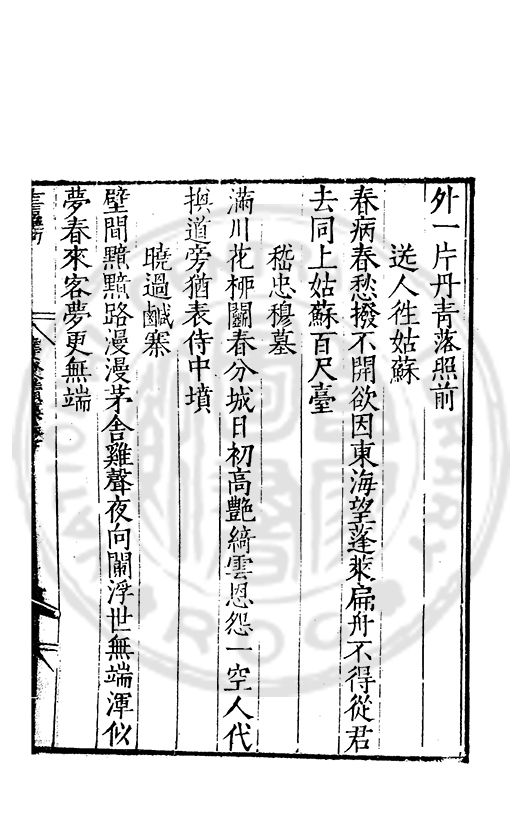 外一片丹青落照前
送人徃姑蘇
春病春愁撥不開欲因東海望蓬萊扁舟不得從君
去同上姑蘇百尺臺
嵇忠穆墓
滿川花柳鬭春分城日初高艷綺雲恩怨一空人代
換道旁猶表侍中墳
曉過鹹寨
壁間黯黯路漫漫茅舎雞聲夜向闌浮世無端渾似
夢春來客夢更無端